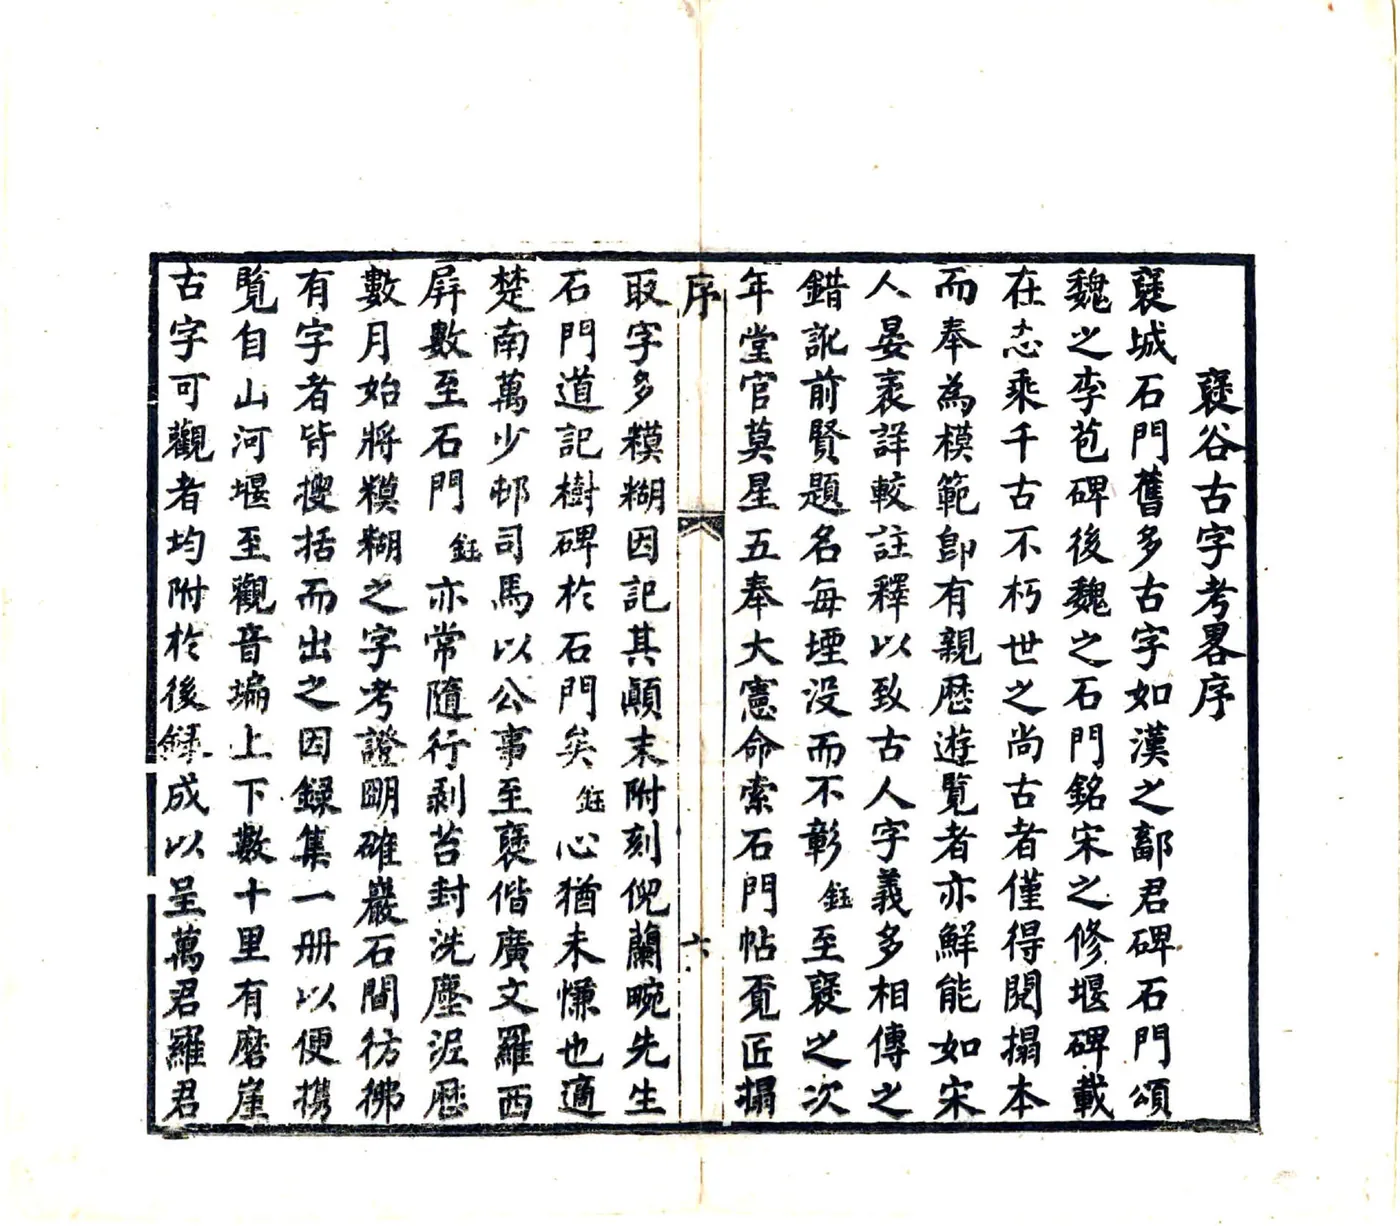 褒谷古字考畧序
褒城石門舊多古字如漢之鄐君碑石門頌
魏之李苞碑後魏之石門銘宋之修堰碑載
在志乘千古不朽世之尚古者僅得閱搨本
而奉為模範即有親歴遊覧者亦鮮能如宋
人晏袤詳較註釋以致古人字義多相傳之
錯訛前賢題名每堙没而不彰鈺至褒之次
年堂官莫星五奉大憲命索石門帖覔匠搨
序
六
取字多糢糊因記其顛末附刻倪蘭畹先生
石門道記樹碑於石門矣鈺心猶未慊也適
楚南萬少邨司馬以公事至褒偕廣文羅西
屏數至石門鈺亦常隨行剥苔封洗塵泥歴
數月始將糢糊之字考證明確巖石間彷彿
有字者皆搜括而出之因録集一册以便攜
覧自山河堰至觀音碥上下數十里有磨崖
古字可觀者均附於後録成以呈萬君羅君